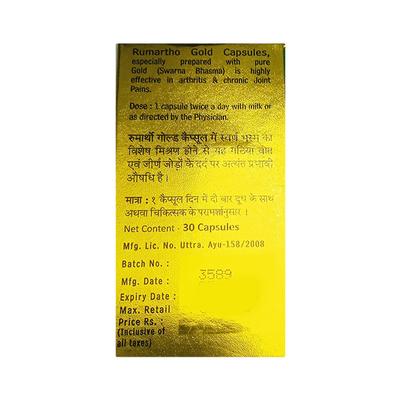 Rumartho Gold Capsules,
especially prepared with pure
Gold (Swarna Bhasma) is highly
effective in arthritis & chronic Joint
Pains.
Dose : 1 capsule twice a day with milk or
as directed by the Physician.
रुमार्थो गोल्ड कैप्सूल में स्वर्ण भस्म का
विशेष मिश्रण होने से यह गठिया वात
एवं जीर्ण जोड़ों के दर्द पर अत्यंत प्रभावी
औषधि है।
मात्रा : १ कैप्सूल दिन में दो बार दूध के साथ
अथवा चिकित्सक के परामर्शानुसार ।
Net Content - 30 Capsules
Mfg. Lic. No. Uttra. Ayu-158/2008
Batch No. :
3589
Mfg. Date :
Expiry Date :
Max. Retail
Price Rs. :
(Inclusive of
all taxes)